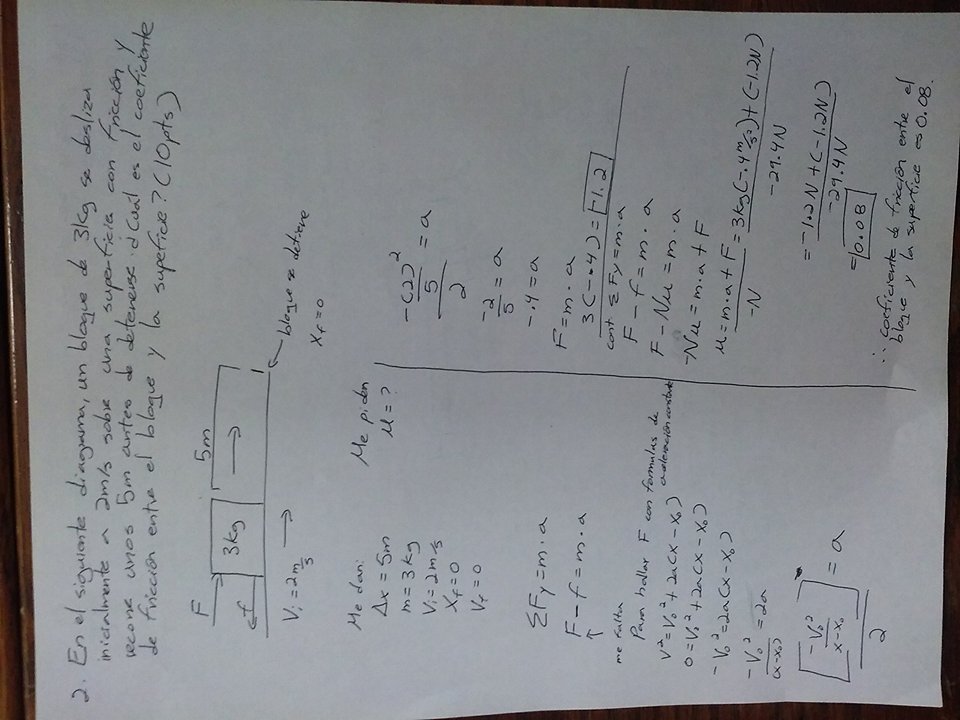 2. En el siguiente diagrama, un bloque de 3Kg se desliza
inicialmente a 2m/s sobre una superficie con fricción y
recorre unos 5m antes de detenerse. ¿Cuál es el coeficiente
de fricción entre el bloque y la superficie? (10pts)
F
5m
3Kg
f
Vi = 2 m/s
bloque se detiene
Xf = 0
Me dan:
Δx = 5m
m = 3 kg
Vi = 2 m/s
Xf = 0
Vf = 0
Me piden
μ = ?
ΣFy = m·a
F - f = m·a
me falta
Para hallar F con formulas de
aceleración constante
V² = V₀² + 2a(x - x₀)
0 = V₀² + 2a(x - x₀)
-V₀² = 2a(x - x₀)
-V₀²/(x-x₀) = 2a
[-V₀²/x-x₀]/2 = a
-(2)²/5/2 = a
-2/5 = a
-.4 = a
F = m·a
3(-.4) = -1.2
cont ΣFy = m·a
F - f = m·a
F - Nμ = m·a
-Nμ = m·a + F
μ = m·a + F/-N = 3kg(-.4 m/s²) + (-1.2N)/-29.4N
= -1.2N + (-1.2N)/-29.4N
= 0.08
∴ coeficiente de fricción entre el
bloque y la superficie es 0.08.